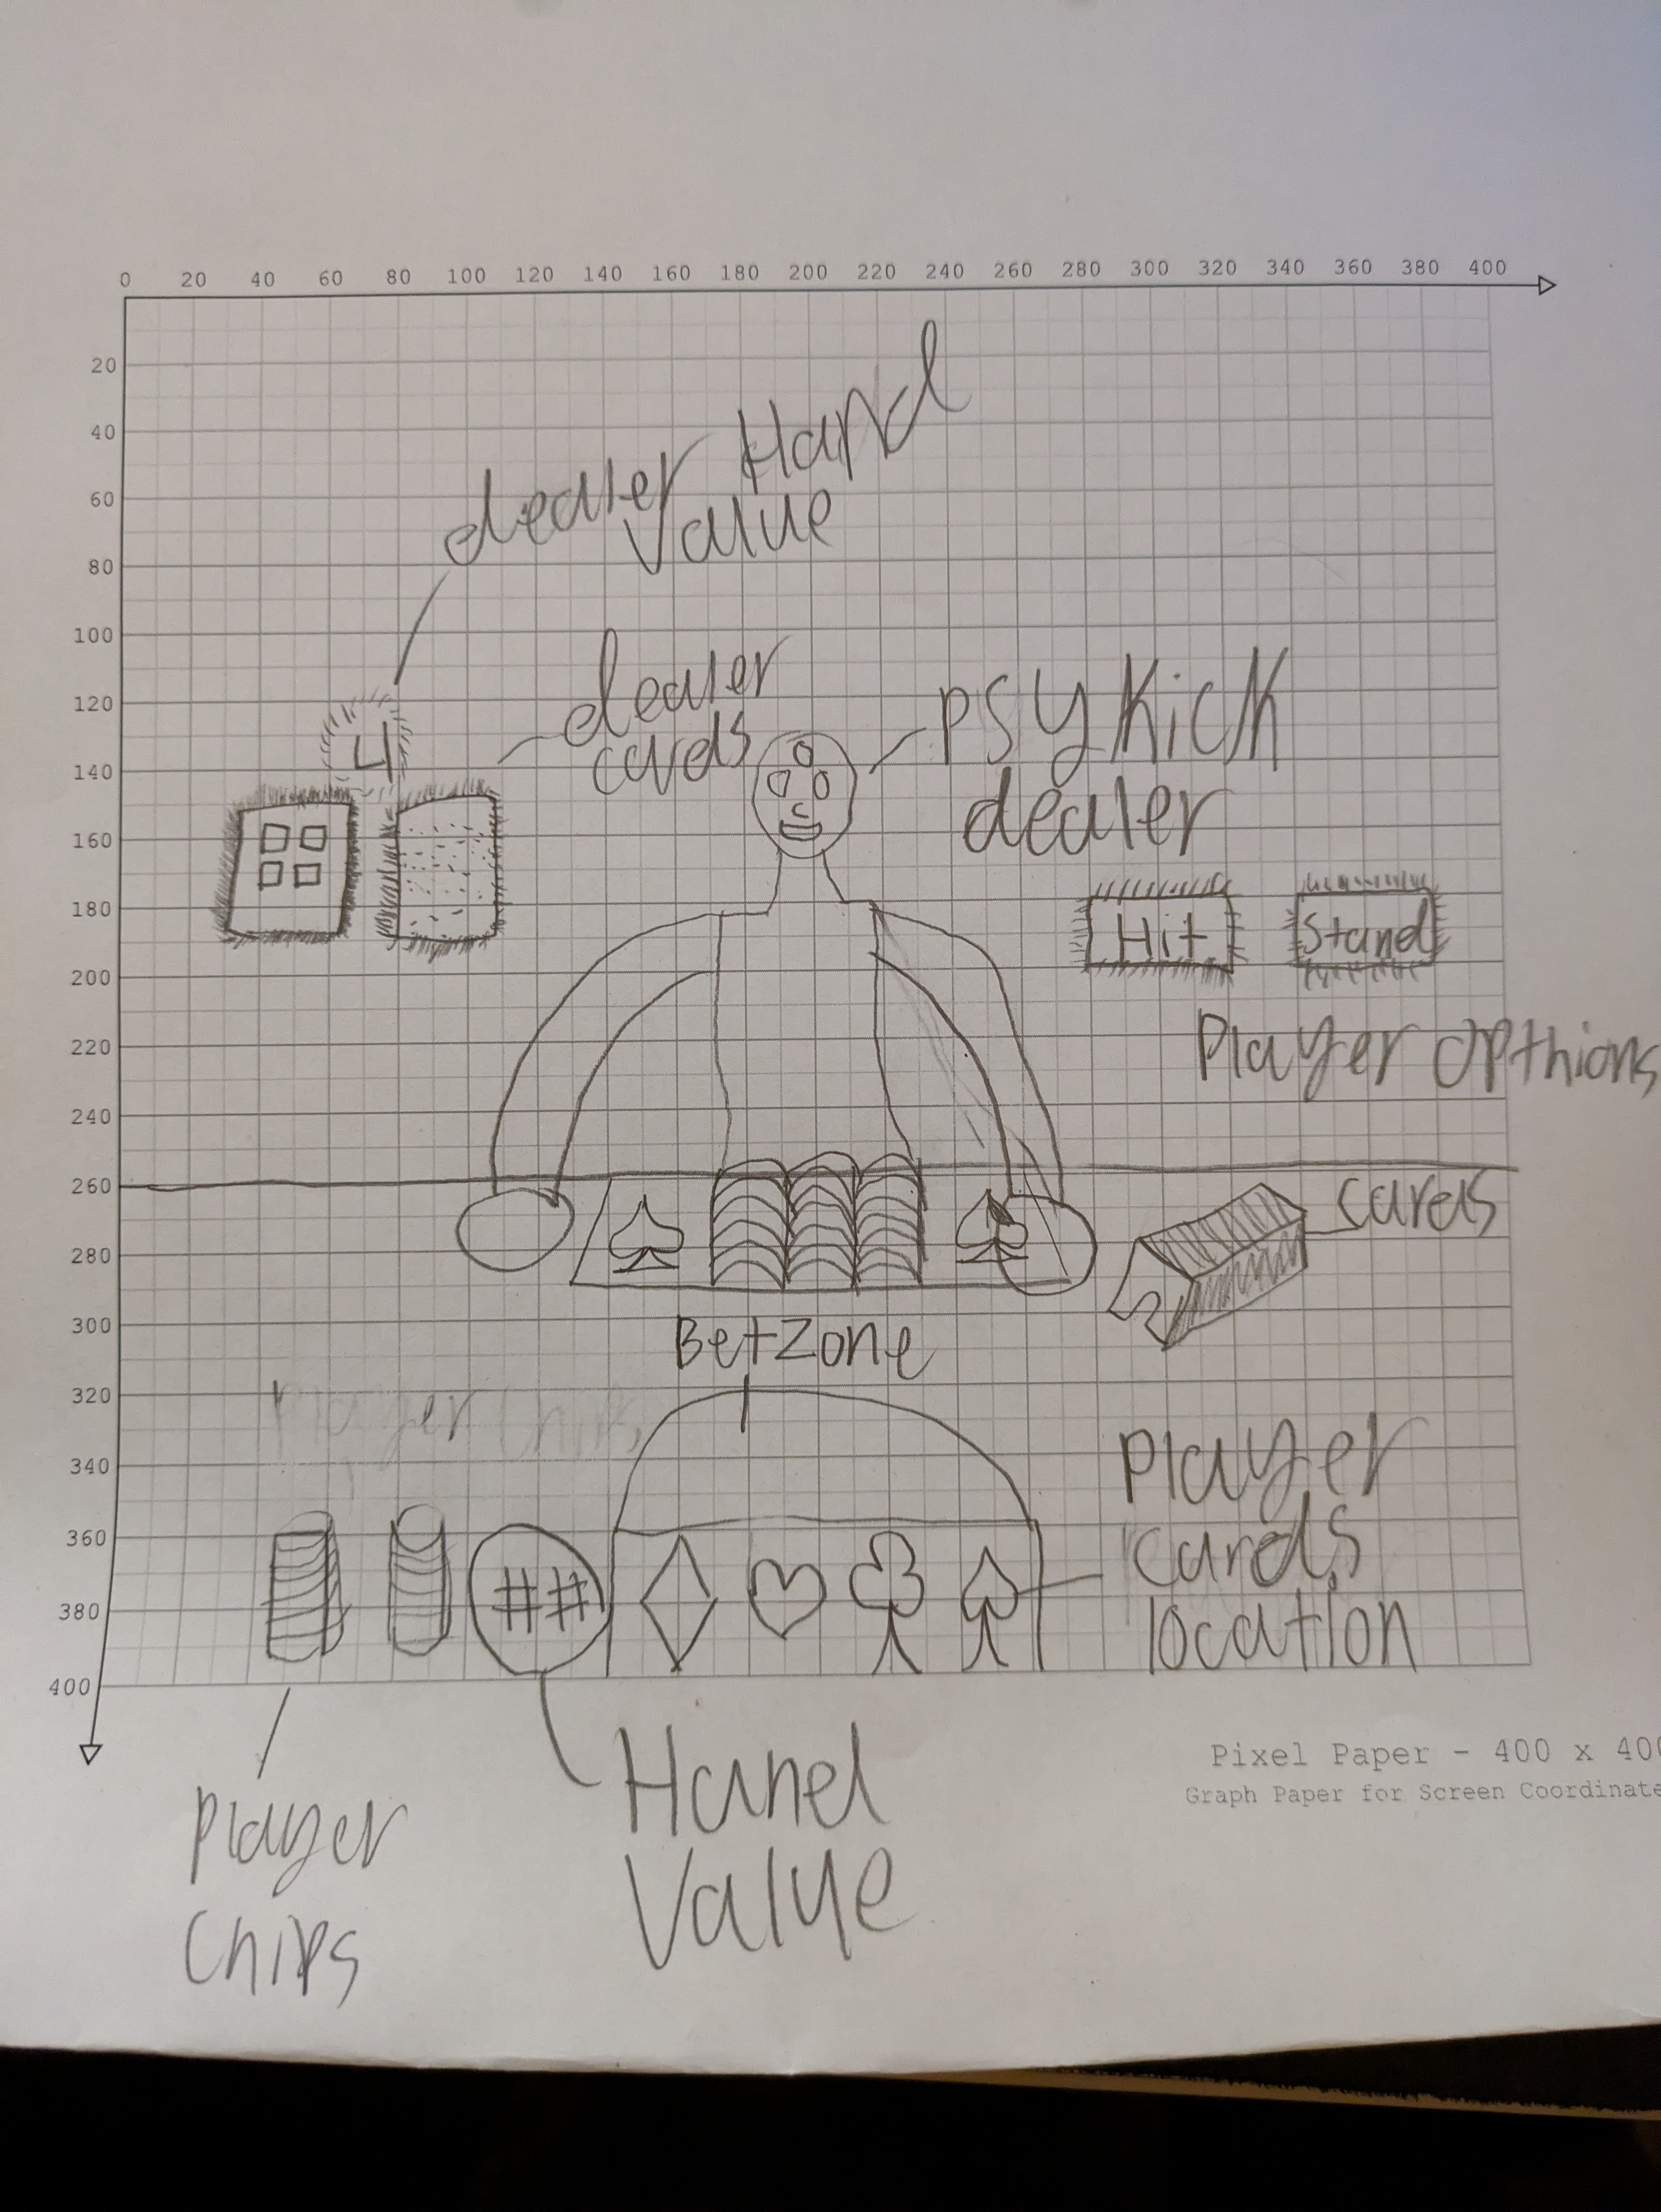 0 20 40 60 80 100 120 140 160 180 200 220 240 260 280 300 320 340 360 380 400
20
40
60
80
100
120
140
160
180
200
220
240
260
280
300
320
340
360
380
400
dealer Hand
Value
dealer
cards
4
PSYKicK
dealer
Hit
Stand
Player OPthions
cards
BetZone
Player Chips
Player
cards
location
##
Hand
Value
Player
Chips
Pixel Paper - 400 x 40
Graph Paper for Screen Coordinate